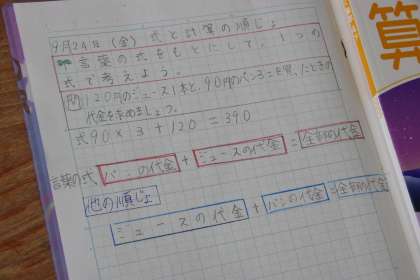 9月24日(金) 式と計算の順じょ
言葉の式をもとにして、1つの
式で考えよう。
問 120円のジュース1本と、90円のパン3こを買ったときの
代金を求めましょう。
式90×3+120=390
言葉の式 パンの代金+ジュースの代金=全部の代金
他の順じょ
ジュースの代金+パンの代金=全部の代金
算